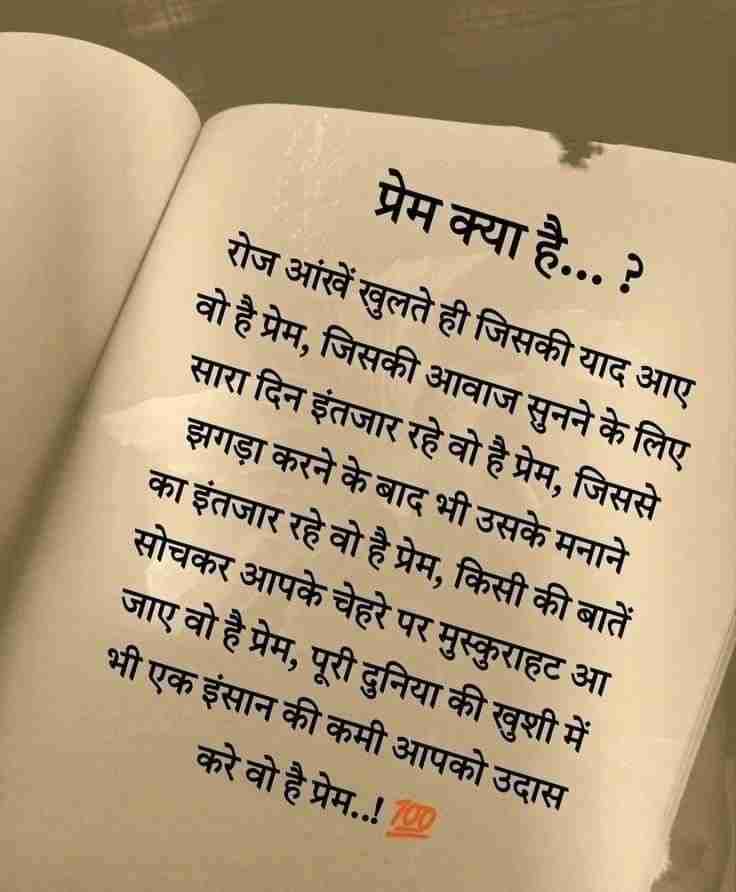 प्रेम क्या है... ?
रोज आंखें खुलते ही जिसकी याद आए
वो है प्रेम, जिसकी आवाज सुनने के लिए
सारा दिन इंतजार रहे वो है प्रेम, जिससे
झगड़ा करने के बाद भी उसके मनाने
का इंतजार रहे वो है प्रेम, किसी की बातें
सोचकर आपके चेहरे पर मुस्कुराहट आ
जाए वो है प्रेम, पूरी दुनिया की खुशी में
भी एक इंसान की कमी आपको उदास
करे वो है प्रेम..! 💯